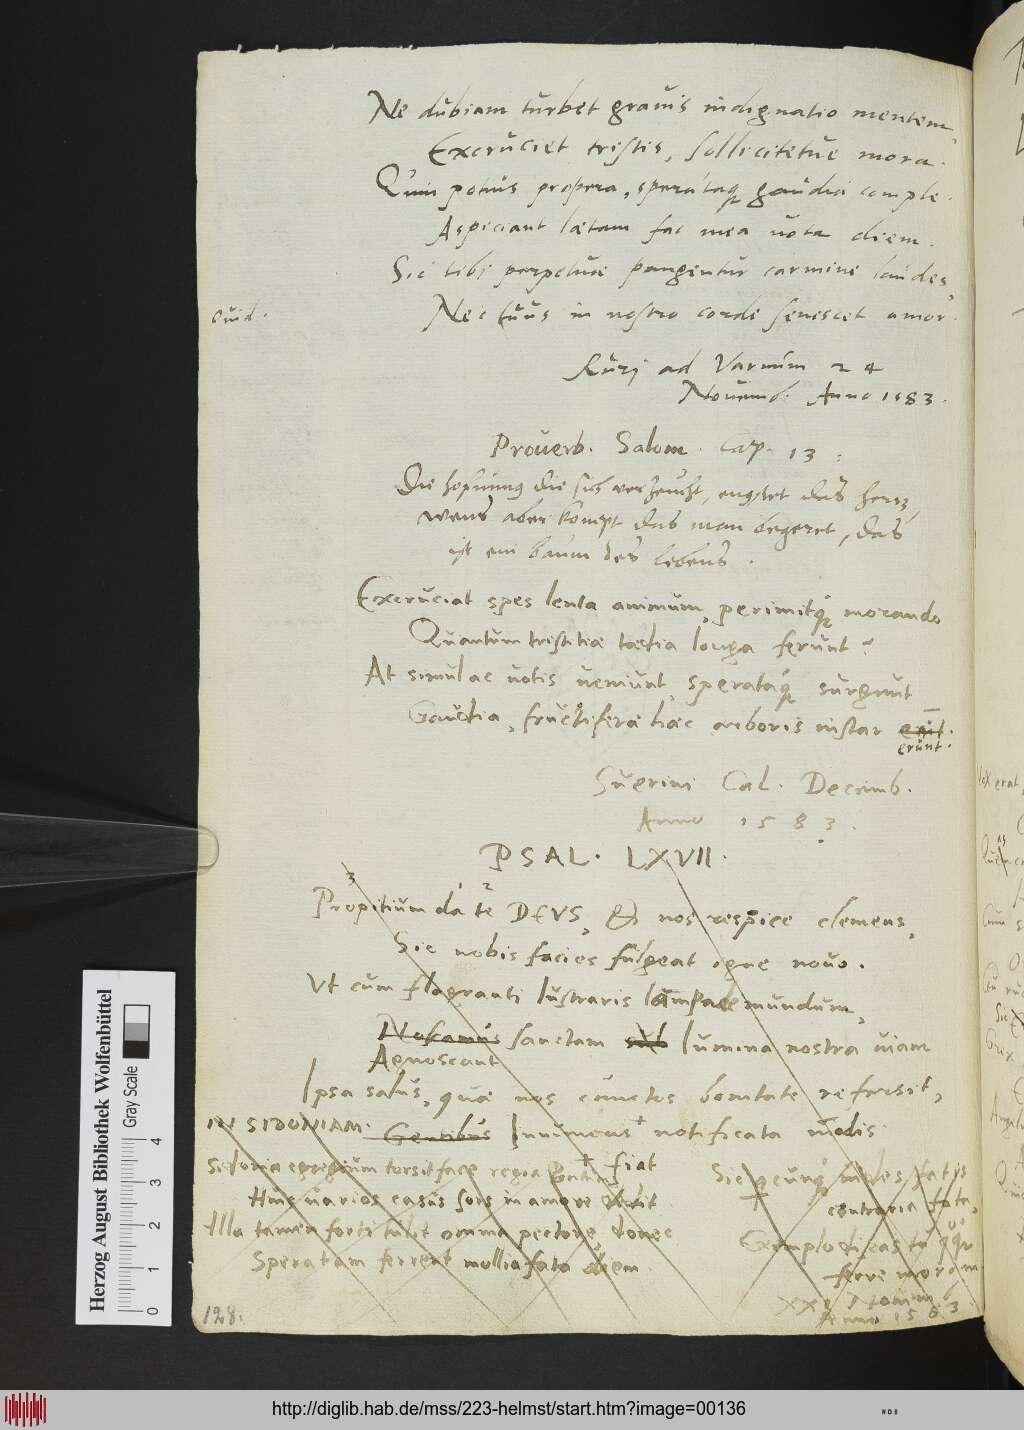 Ne dubiam turbet grauis indignatio mentem,
Excruciet tristis, sollicitetue mora.
Quin potius propera, sperataq gaudia comple.
Aspiciant lætam fac mea uota diem.
Sic tibi perpetuæ pangentur carmine laudes,
ouid. Nec tuus in nostro corde senescet amor.
Ruri ad Varnum 24
Nouemb. Anno 1583.
Prouerb. Salom. cap. 13:
Die hofnung die sich verzeucht, engstet das hertz,
wens aber kompt das man begeret, das
ist ein baum des lebens.
Excruciat spes lenta animum, perimitq morando
Quantum tristitiæ tædia longa ferunt?
At simul ac uotis ueniunt, sperataq surgunt
Gaudia, fructiferæ hæc arboris instar erit.
erunt.
Suerini Cal. Decemb.
Anno 1583.
PSAL. LXVII.
3 2
Propitium da te DEVS, & nos respice clemens,
Sic nobis facies fulgeat igne nouo.
Vt cum flagranti lustraris lampade mundum,
Noscamus sanctam sub lumina nostra uiam
Agnoscant
Ipsa salus, quæ nos cunctos bonitate refarsit,
Gentibus Innumeris + notificata modis
+ fiat
IN SIDONIAM.
Sidonia egregium torsit face regia
Hinc uarios casus sors in amore dedit
Illa tamen forti tulit omnia pectore, donec
Speratam ferrent mollia fata diem.
Sic fides, fatis
contraria fata,
Exemplo
ferre moram
XXI
Anno 1583.
128.
Herzog August Bibliothek Wolfenbüttel
Gray Scale
0 1 2 3 4
http://diglib.hab.de/mss/223-helmst/start.htm?image=00136